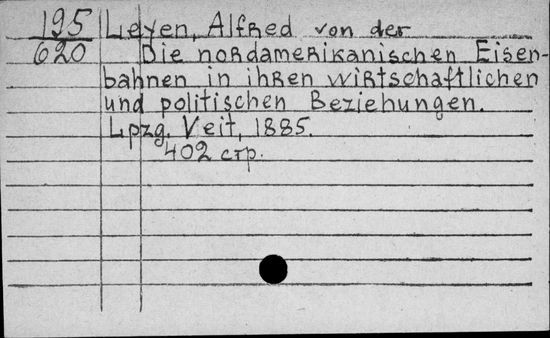 195 Leyen, Alfred von der
620 Die nordamerikanischen Eisen-
bahnen in ihren wirtschaftlichen
und politischen Beziehungen.
Lpzg. Veit, 1885.
402 стр.